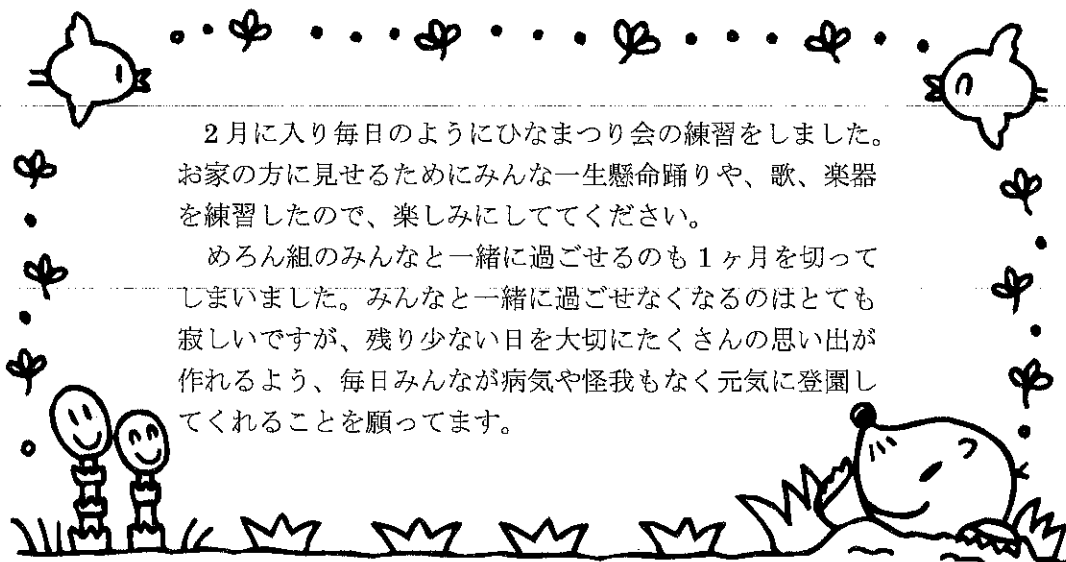 2月に入り毎日のようにひなまつり会の練習をしました。
お家の方に見せるためにみんな一生懸命踊りや、歌、楽器
を練習したので、楽しみにしててください。
　めろん組のみんなと一緒に過ごせるのも1ヶ月を切って
しまいました。みんなと一緒に過ごせなくなるのはとても
寂しいですが、残り少ない日を大切にたくさんの思い出が
作れるよう、毎日みんなが病気や怪我もなく元気に登園し
てくれることを願ってます。